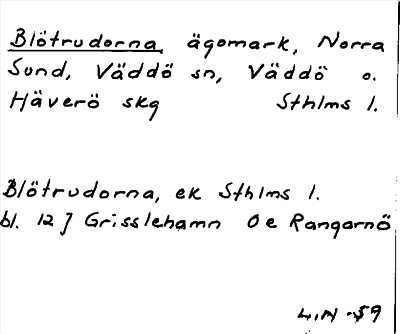 Blötrudorna, ägomark, Norra
Sund, Väddö sn, Väddö o.
Häverö skg Sthlms l.
Blötrudorna, ek Sthlms l.
bl. 12] Grisslehamn Oe Rangarnö
L.N -59